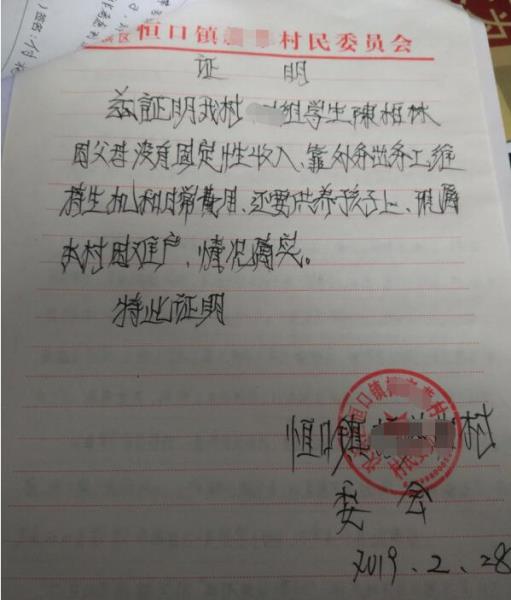 区 恒口镇 村民委员会
证 明
兹证明我村 组学生陈柏林
因父母没有固定性收入、靠外务出务工维
持生机和日常费用、还要供养孩子上、很属
本村困难户、情况属实。
特此证明
恒口镇 村
委 会
2019.2.28
恒口镇 村
村民委